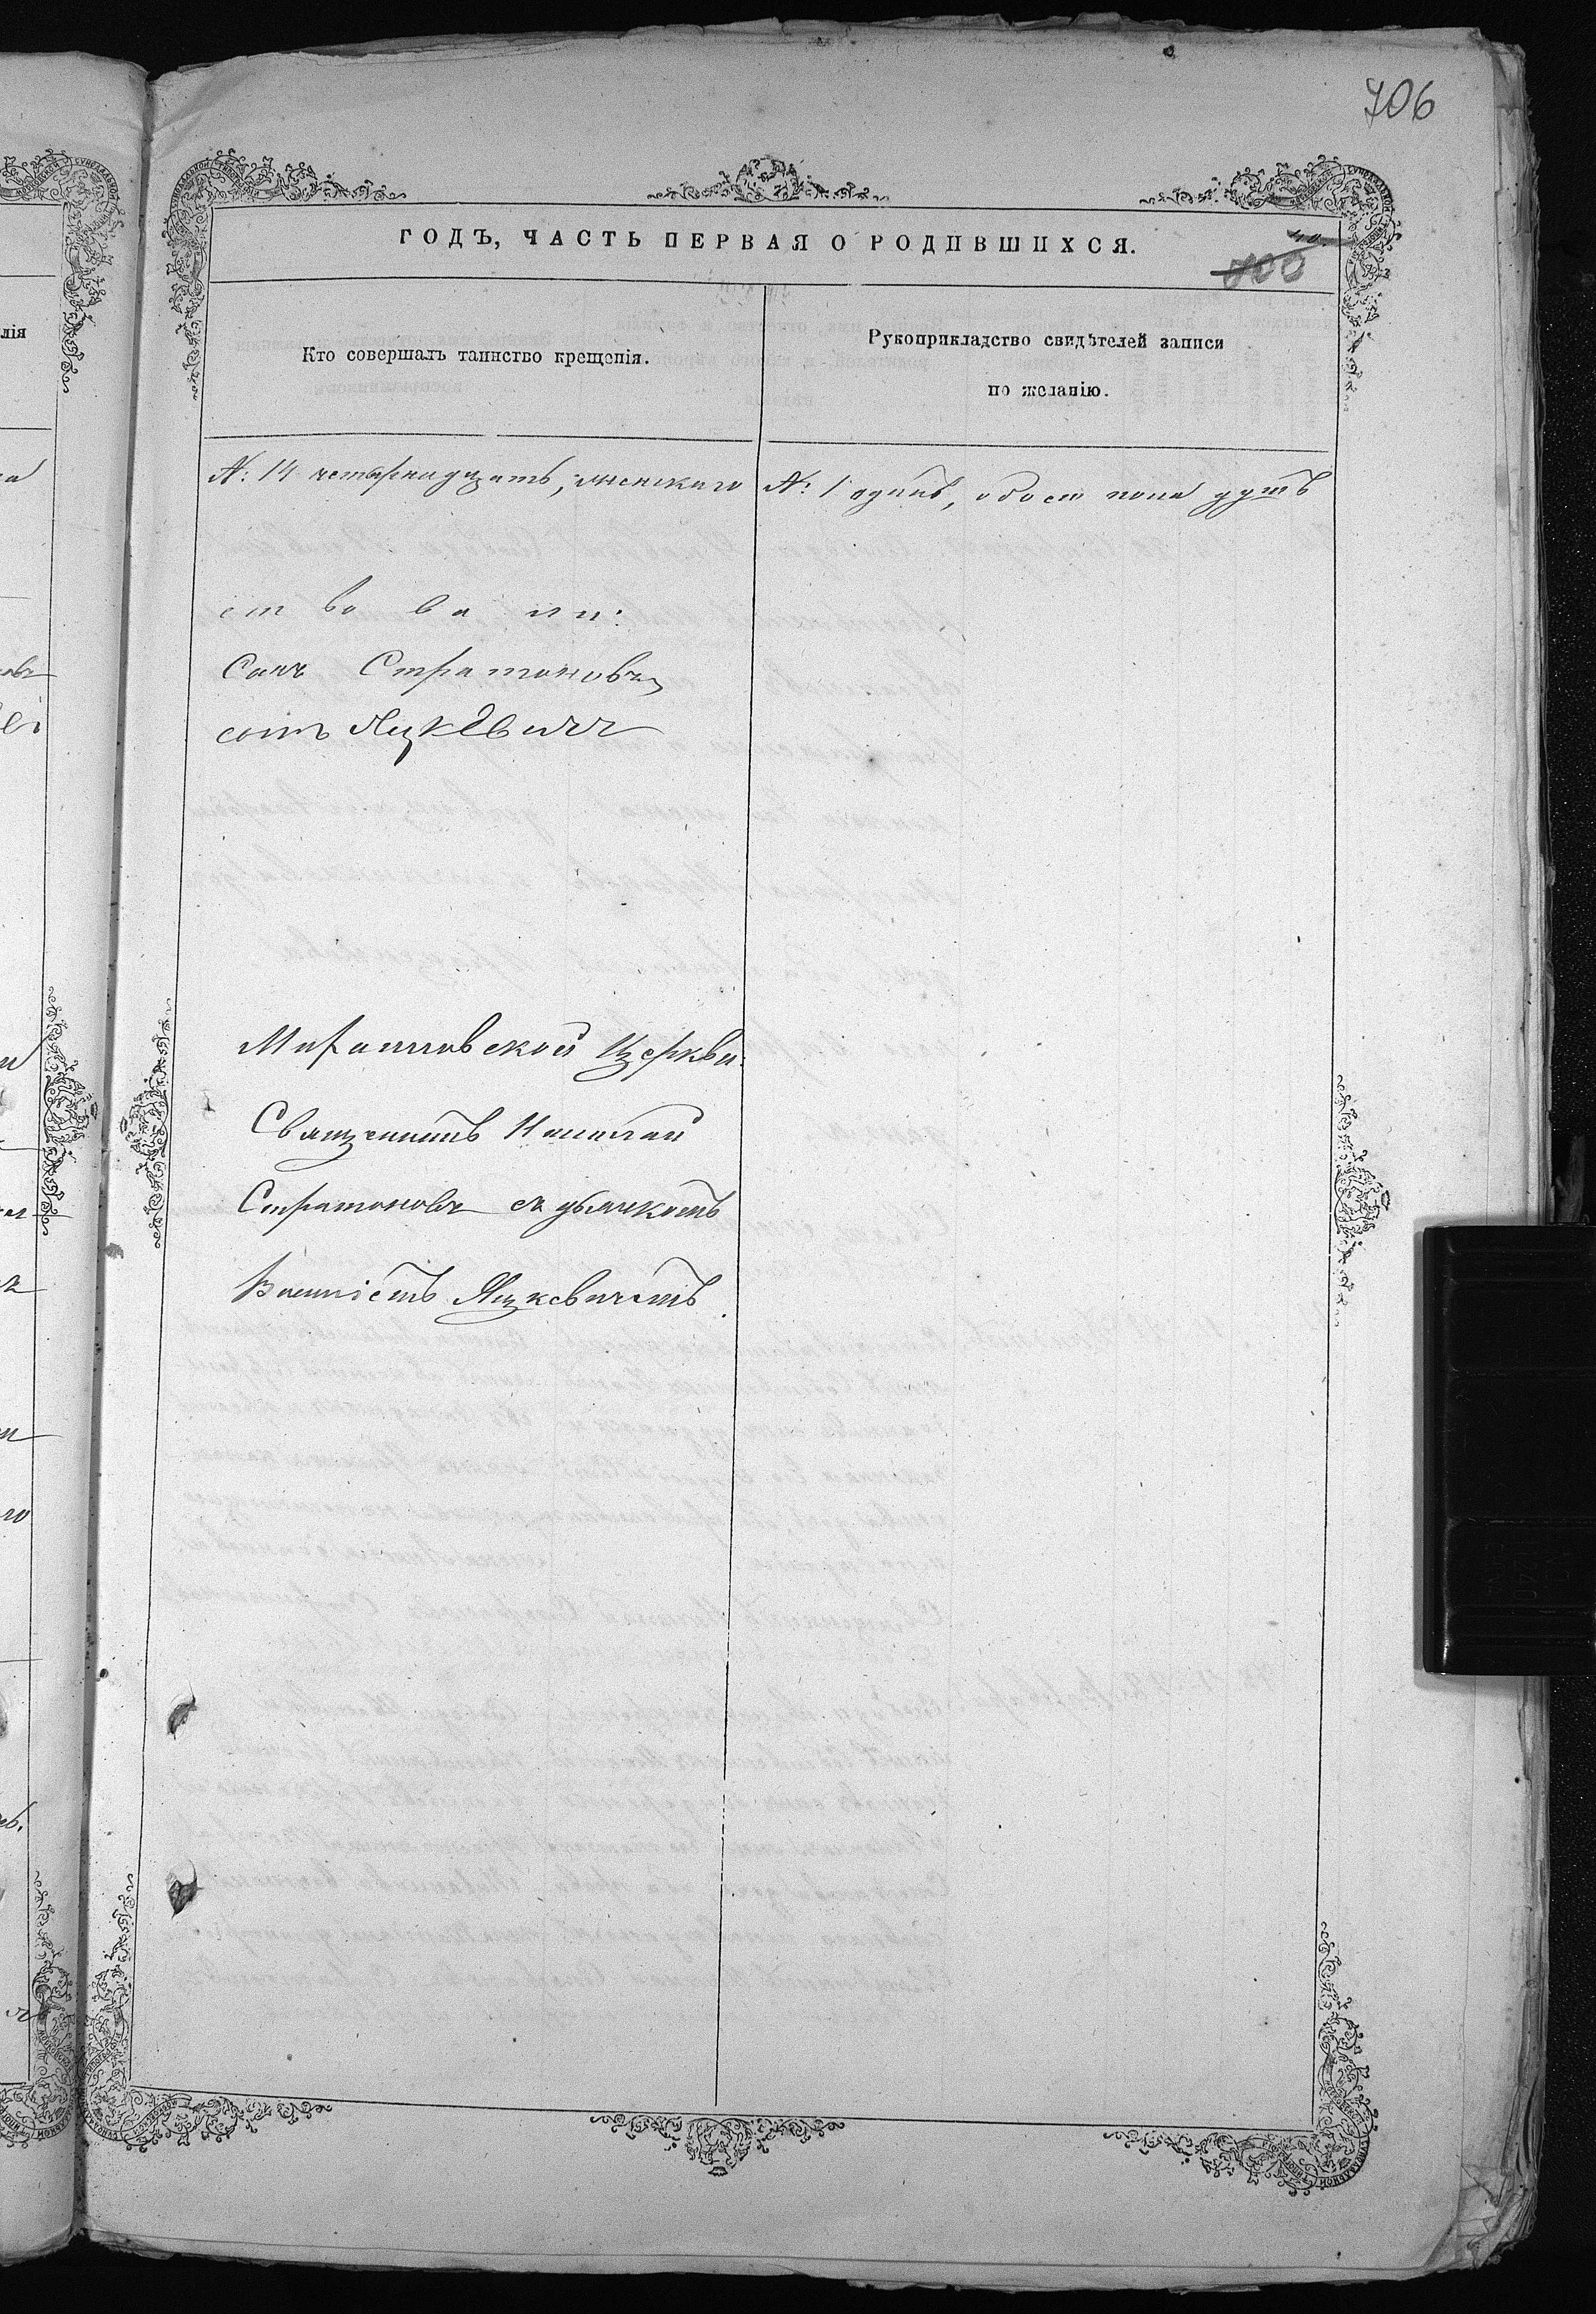 706
ГОДЪ, ЧАСТЬ ПЕРВАЯ О РОДИВШИХСЯ.
Кто совершалъ таинство крещенія.
Рукоприкладство свидѣтелей записи
по желанію.
№: 14 четырнадцать, женскаго
№: 1 одинъ, обоего пола душъ
ст во ва ли:
Стратоновъ
Яцкевичъ
церкви
Священникъ Николай
Стратоновъ съ дьячкомъ
Яцкевичемъ